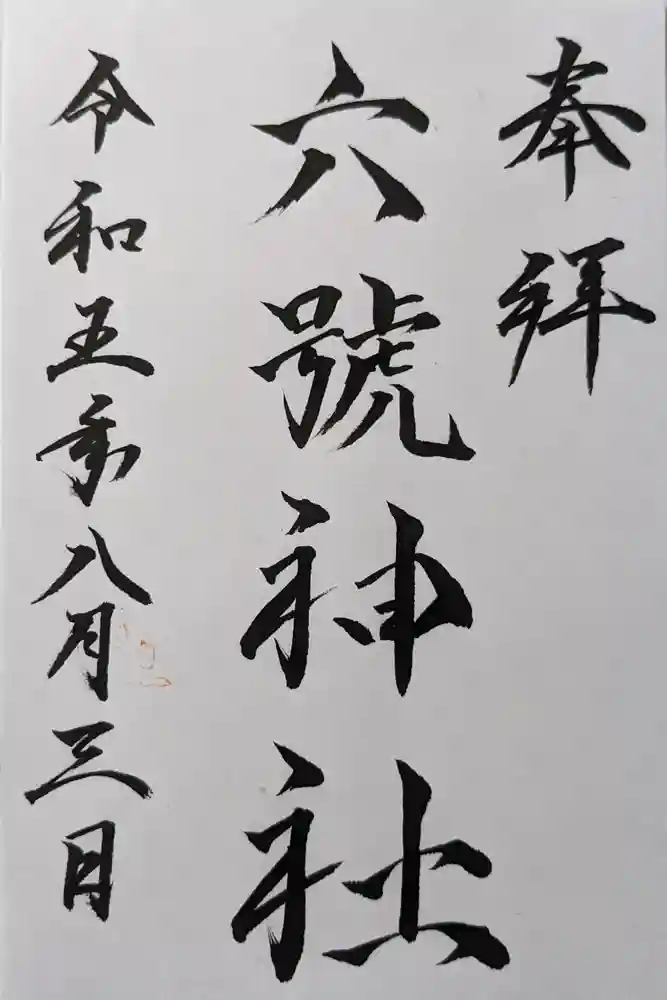 奉拜
六號神社
令和五年八月三日